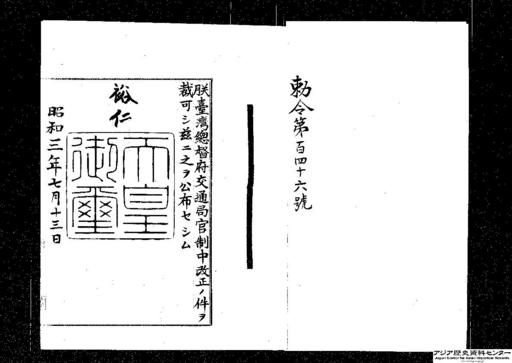 勅令第百四十六號
朕臺灣總督府交通局官制中改正ノ件ヲ
裁可シ玆ニ之ヲ公布セシム
裕仁
天皇
御璽
昭和三年七月十三日
アジア歴史資料センター
Japan Center for Asian Historical Records